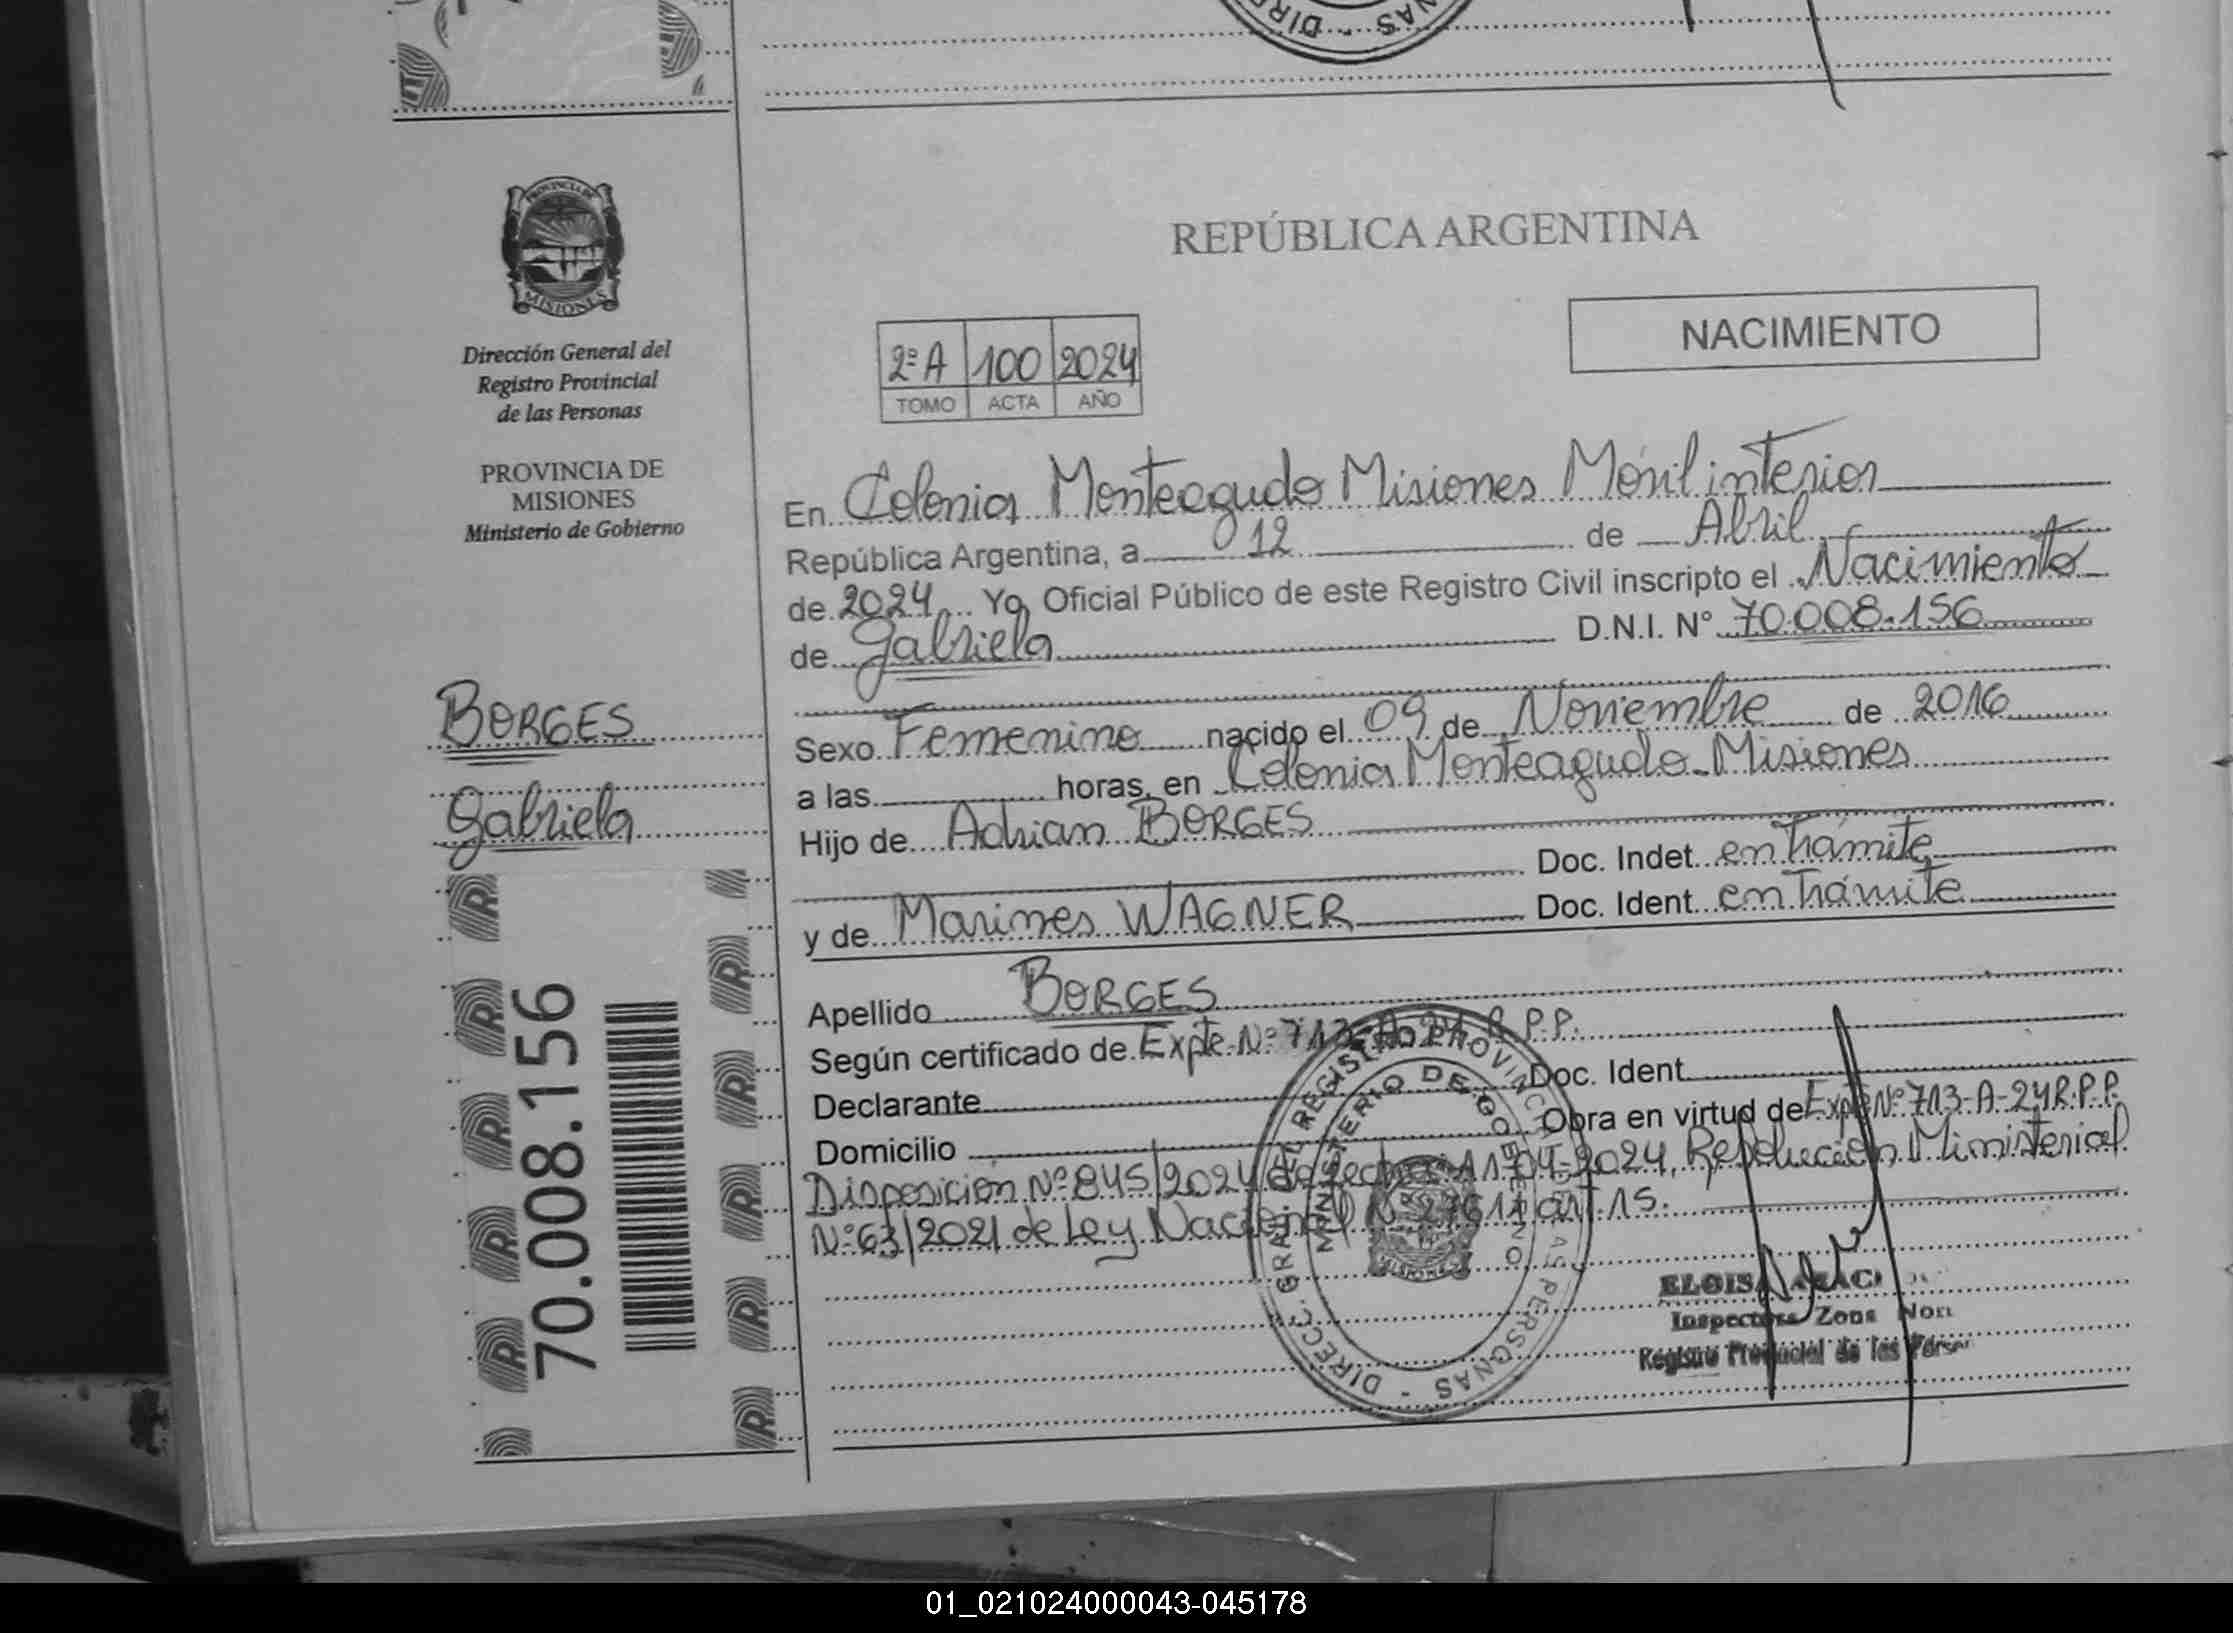 PROVINCIA DE
MISIONES
Dirección General del
Registro Provincial
de las Personas
PROVINCIA DE
MISIONES
Ministerio de Gobierno
BORGES
Gabriela
70.008.156
REPÚBLICA ARGENTINA
NACIMIENTO
2ºA 100 2024
TOMO ACTA AÑO
En Colonia Monteagudo Misiones Móvil interior
República Argentina, a 12 de Abril
de 2024 Yo, Oficial Público de este Registro Civil inscripto el Nacimiento
de Gabriela D.N.I. N° 70.008.156
Sexo Femenino nacido el 09 de Noviembre de 2016
a las horas, en Colonia Monteagudo Misiones
Hijo de Adrian BORGES
Doc. Indet. en trámite
y de Marines WAGNER Doc. Ident. en trámite
Apellido BORGES
Según certificado de Expte Nº 713-A-24 R.P.P.
Declarante Doc. Ident.
Domicilio Obra en virtud de Expte Nº 713-A-24 R.P.P.
Disposición Nº 845/2024 de fecha 11-04-2024, Resolución Ministerial
Nº 63/2021 de Ley Nacional Nº 27611 art 15.
DIRECC. GRAL. DEL REGISTRO PROVINCIAL DE LAS PERSONAS
MINISTERIO DE GOBIERNO
MISIONES
Inspectora Zona
Registro Provincial de las
01_021024000043-045178